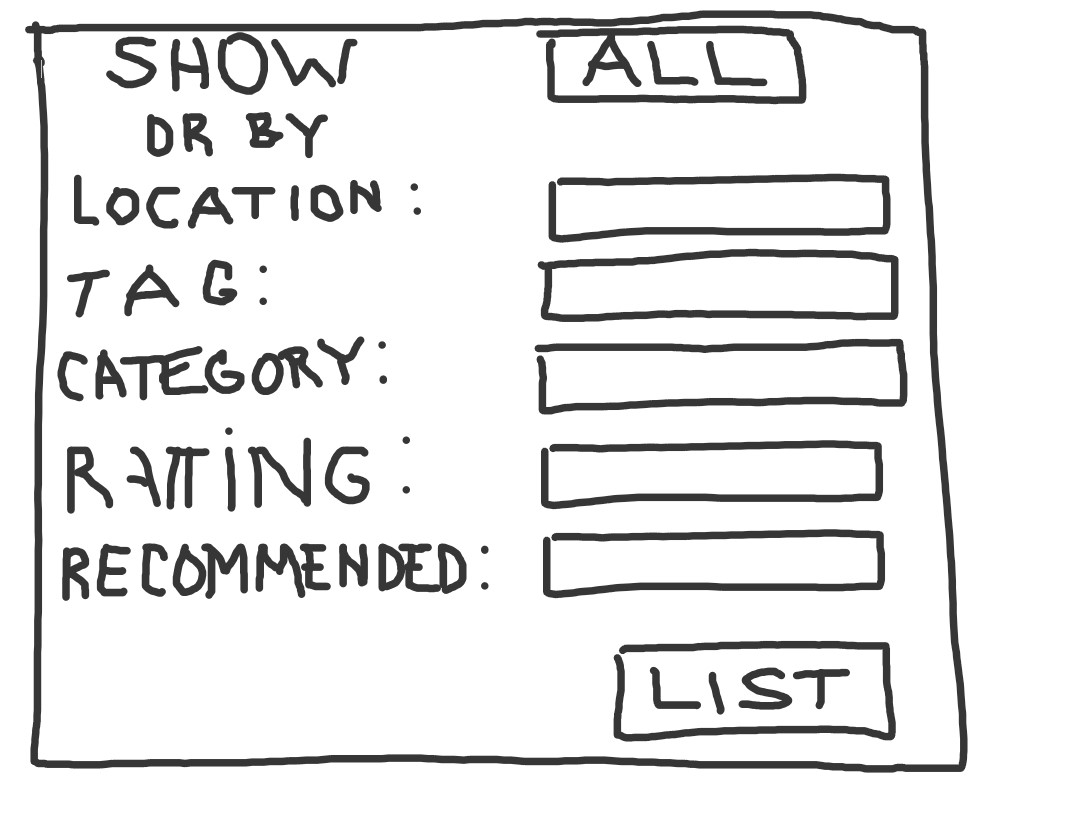 SHOW ALL
OR BY
LOCATION :
TAG :
CATEGORY :
RATTiNG :
RECOMMENDED :
LIST